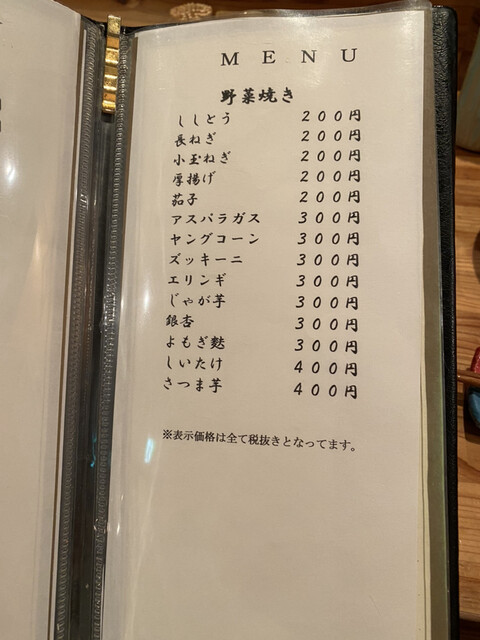 MENU
野菜焼き
ししとう 200円
長ねぎ 200円
小玉ねぎ 200円
厚揚げ 200円
茄子 200円
アスパラガス 300円
ヤングコーン 300円
ズッキーニ 300円
エリンギ 300円
じゃが芋 300円
銀杏 300円
よもぎ麩 300円
しいたけ 400円
さつま芋 400円
※表示価格は全て税抜きとなってます。